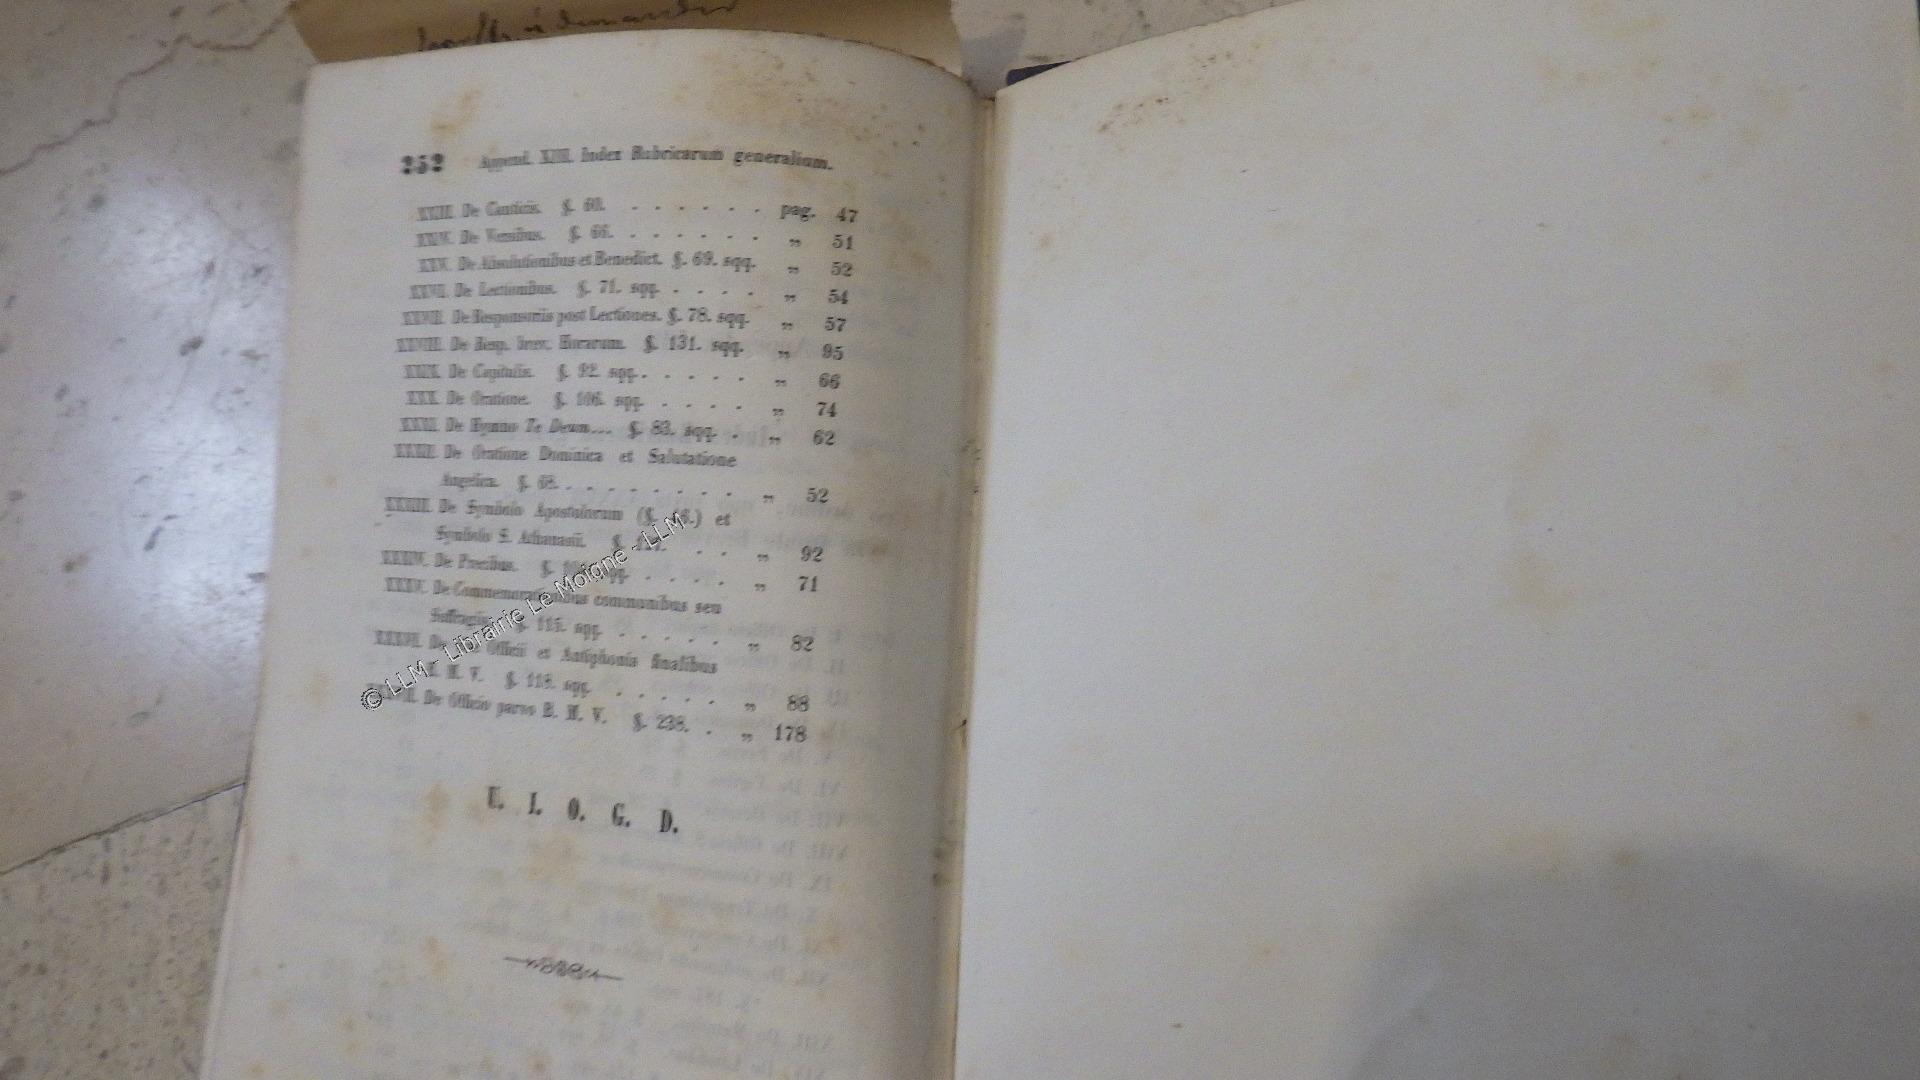 252 Append. XIII. Index Rubricarum generalium.
XXIII. De Canticis. §. 60. . . . . . . pag. 47
XXIV. De Versibus. §. 66. . . . . . . „ 51
XXV. De Absolutionibus et Benedict. §. 69. sqq. „ 52
XXVI. De Lectionibus. §. 71. sqq. . . . . „ 54
XXVII. De Responsoriis post Lectiones. §. 78. sqq. „ 57
XXVIII. De Resp. brev. Horarum. §. 131. sqq. „ 95
XXIX. De Capitulis. §. 92. sqq. . . . . . „ 66
XXX. De Oratione. §. 106. sqq. . . . . „ 74
XXXI. De Hymno Te Deum... §. 83. sqq. . „ 62
XXXII. De Oratione Dominica et Salutatione
Angelica. §. 68. . . . . . . . . „ 52
XXXIII. De Symbolo Apostolorum (§. .) et
Symbolo S. Athanasii. §. . . „ 92
XXXIV. De Precibus. §. sqq. . . . . „ 71
XXXV. De Commemorationibus communibus seu
Suffragiis. §. 115. sqq. . . . . . „ 82
XXXVI. De Officii et Antiphonis finalibus
M. V. §. 118. sqq. . . . . . „ 88
De Officio parvo B. M. V. §. 238. . „ 178
U. I. O. G. D.
© LLM - Librairie Le Moigne - LLM